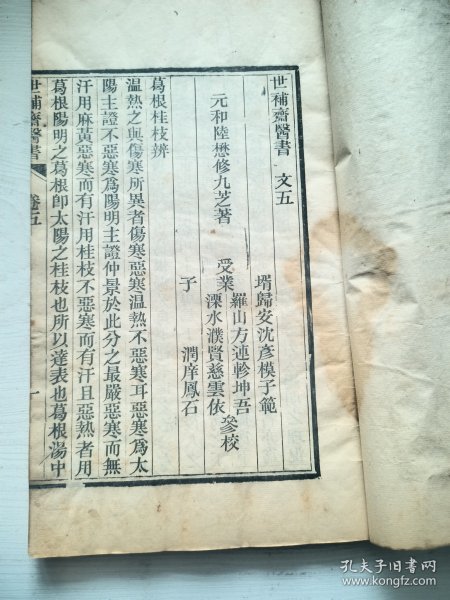 世補齋醫書 文五
元和陸懋修九芝著
壻歸安沈彥模子範
受業
羅山方連軫坤吾
溧水濮賢慈雲依
參校
子 潤庠鳳石
葛根桂枝辨
溫熱之與傷寒所異者傷寒惡寒溫熱不惡寒耳惡寒爲太
陽主證不惡寒爲陽明主證仲景於此分之最嚴惡寒而無
汗用麻黃惡寒而有汗用桂枝不惡寒而有汗且惡熱者用
葛根陽明之葛根卽太陽之桂枝也所以達表也葛根湯中
世補齋醫書 卷五 一
孔夫子旧书网
www.kongfz.com